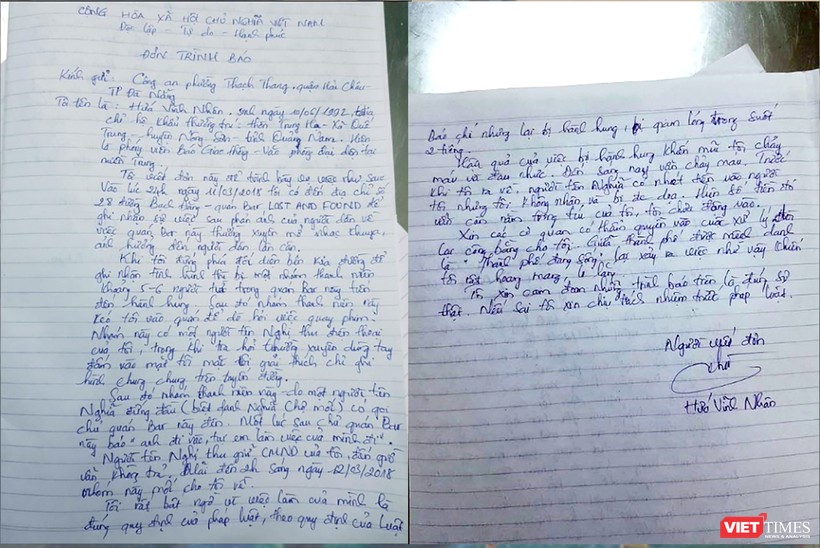 CỘNG HÒA XÃ HỘI CHỦ NGHĨA VIỆT NAM
Độc lập - Tự do - Hạnh phúc
ĐƠN TRÌNH BÁO
Kính gửi: Công an phường Thạch Thang, quận Hải Châu -
TP Đà Nẵng
Tôi tên là: Hứa Vĩnh Nhân, sinh ngày 10/06/1992,
chỉ hộ khẩu thường trú: thôn Trung Hạ - Xã Quế
Trung, huyện Nông Sơn, tỉnh Quảng Nam. Hiện
là phóng viên Báo Giao Thông - Văn phòng đại diện tại
miền Trung.
Tôi viết đơn này để trình bày sự việc như sau:
Vào lúc 24h ngày 11/03/2018 tôi có đến địa chỉ số
28 đường Bạch Đằng - quán Bar LOST AND FOUND để
ghi nhận sự việc sau phản ánh của người dân về
việc quán Bar này thường xuyên mở nhạc khuya,
ảnh hưởng đến người dân lân cận.
Khi tôi đứng phía đối diện bên kia đường để
ghi nhận tình hình thì bị một đám thanh niên
khoảng 5-6 người từ trong quán Bar này tiến
đến hành hung. Sau đó nhóm thanh niên này
kéo tôi vào quán để dò hỏi việc quay phim.
Nhóm này có một người tên Nghị thu điện thoại
của tôi, trong khi tra hỏi thường xuyên dùng tay
đấm vào mặt tôi mặc tôi giải thích chỉ ghi
hình chung chung trên tuyến đường.
Sau đó nhóm thanh niên này do một người tên
Nghĩa đứng đầu (biệt danh Nghĩa Chợ mới) có gọi
chủ quán Bar này đến. Một lúc sau chủ quán Bar
này bảo "anh đi về, tụi em làm việc của mình đi".
Người tên Nghị thu giữ CMND của tôi, đến giờ
vẫn không trả, đến 2h sáng ngày 12/03/2018
nhóm này mới cho tôi về.
Tôi rất bất ngờ vì việc làm của mình là
đúng quy định của pháp luật, theo quy định của Luật
Báo chí nhưng lại bị hành hung, bị giam lỏng trong suốt
2 tiếng.
Hậu quả của việc bị hành hung khiến mũi tôi chảy
máu và đau nhức. Đến sáng nay vẫn chảy máu. Trước
khi tôi ra về, người tên Nghĩa có nhét tiền vào người
tôi nhưng tôi không nhận và bị đe dọa. Hiện số tiền đó
vẫn còn nằm trong túi của tôi, tôi chưa động vào.
Xin các cơ quan có thẩm quyền vào cuộc xử lý, đòi
lại công bằng cho tôi. Giữa thành phố được mệnh danh
là "Thành phố đáng sống" lại xảy ra việc như vậy khiến
tôi rất hoang mang, lo lắng.
Tôi xin cam đoan những trình báo trên là đúng sự
thật. Nếu sai tôi xin chịu trách nhiệm trước pháp luật.
Người viết đơn
Hứa Vĩnh Nhân
VIETTIMES
NEWS & ANALYSIS